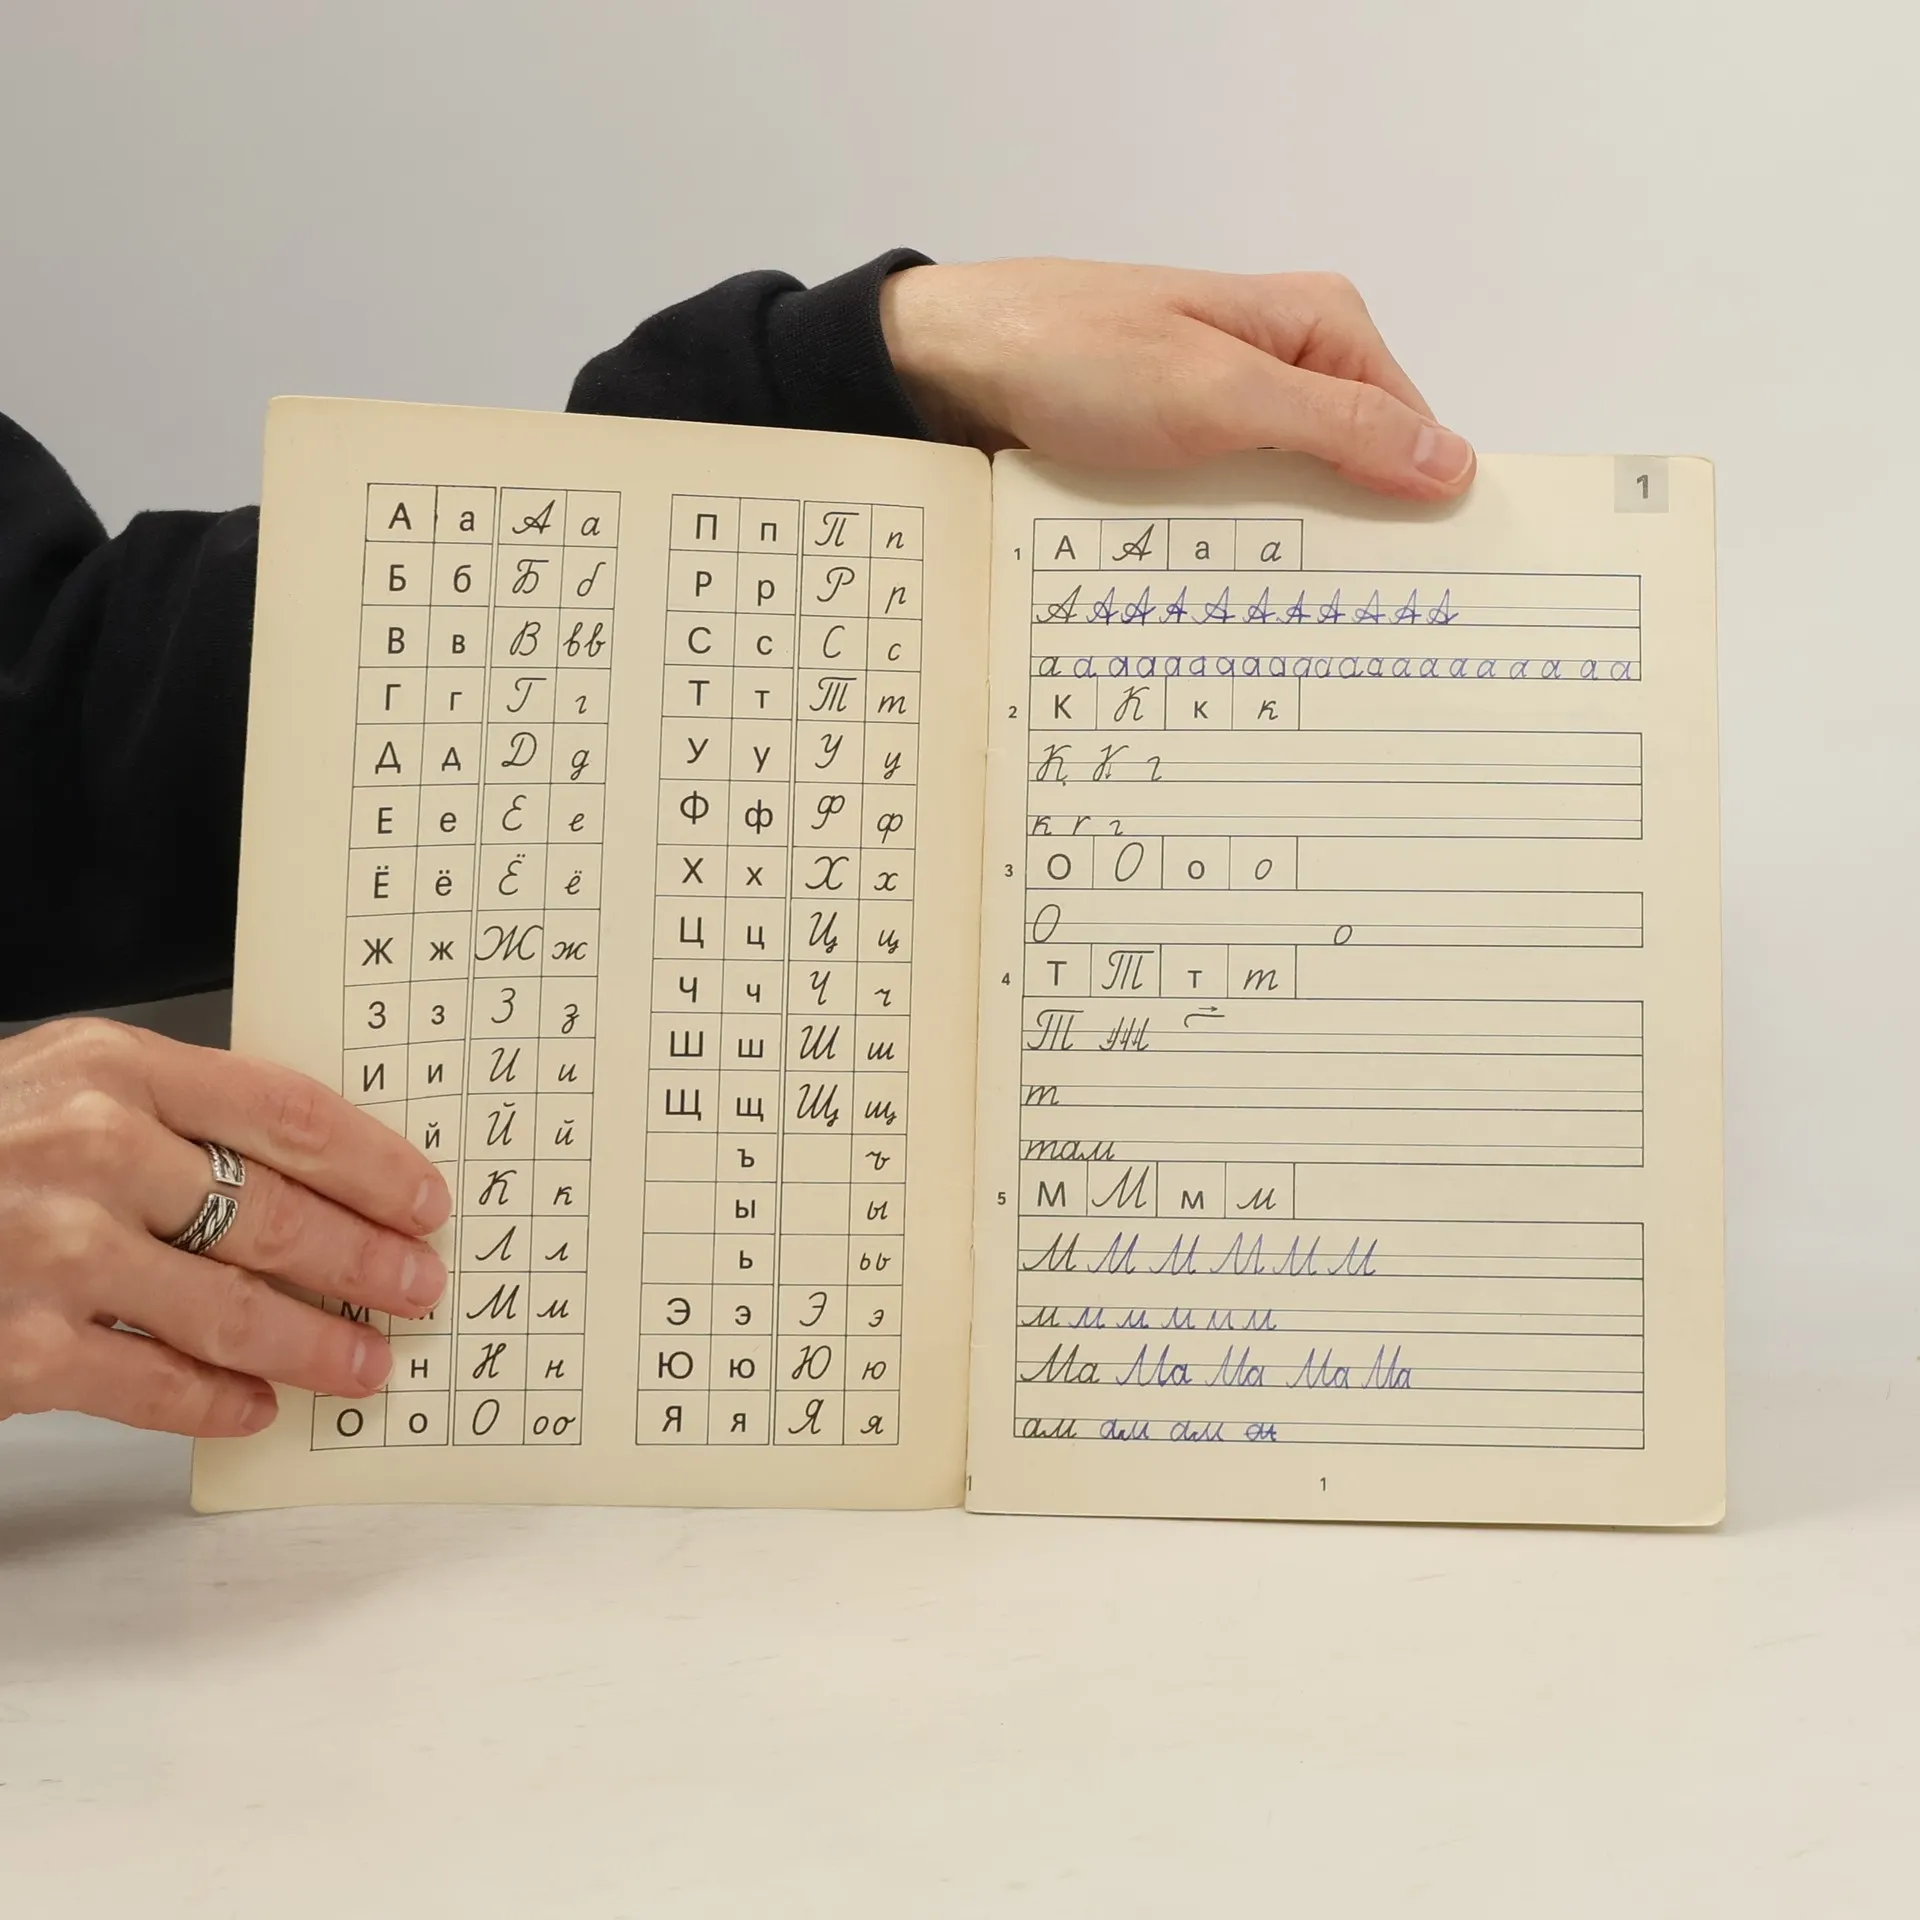 А а А а
Б б Б б
В в В вв
Г г Г г
Д д Д д
Е е Е е
Ё ё Ё ё
Ж ж Ж ж
З з З з
И и И и
й Й й
К к
Л л
М М м
н Н н
О о О оо
П п П п
Р р Р р
С с С с
Т т Т т
У у У у
Ф ф Ф ф
Х х Х х
Ц ц Ц ц
Ч ч Ч ч
Ш ш Ш ш
Щ щ Щ щ
ъ ъ
ы ы
ь ьь
Э э Э э
Ю ю Ю ю
Я я Я я
1
1 А А а а
А А А А А А А А А А А
а а а а а а а а а а а а а а а а а а а а а
2 К К к к
К К г
к г г
3 О О о о
О о
4 Т Т т т
Т Т
т
там
5 М М м м
М М М М М М
м м м м м м
Ма Ма Ма Ма Ма
ам ам ам
1